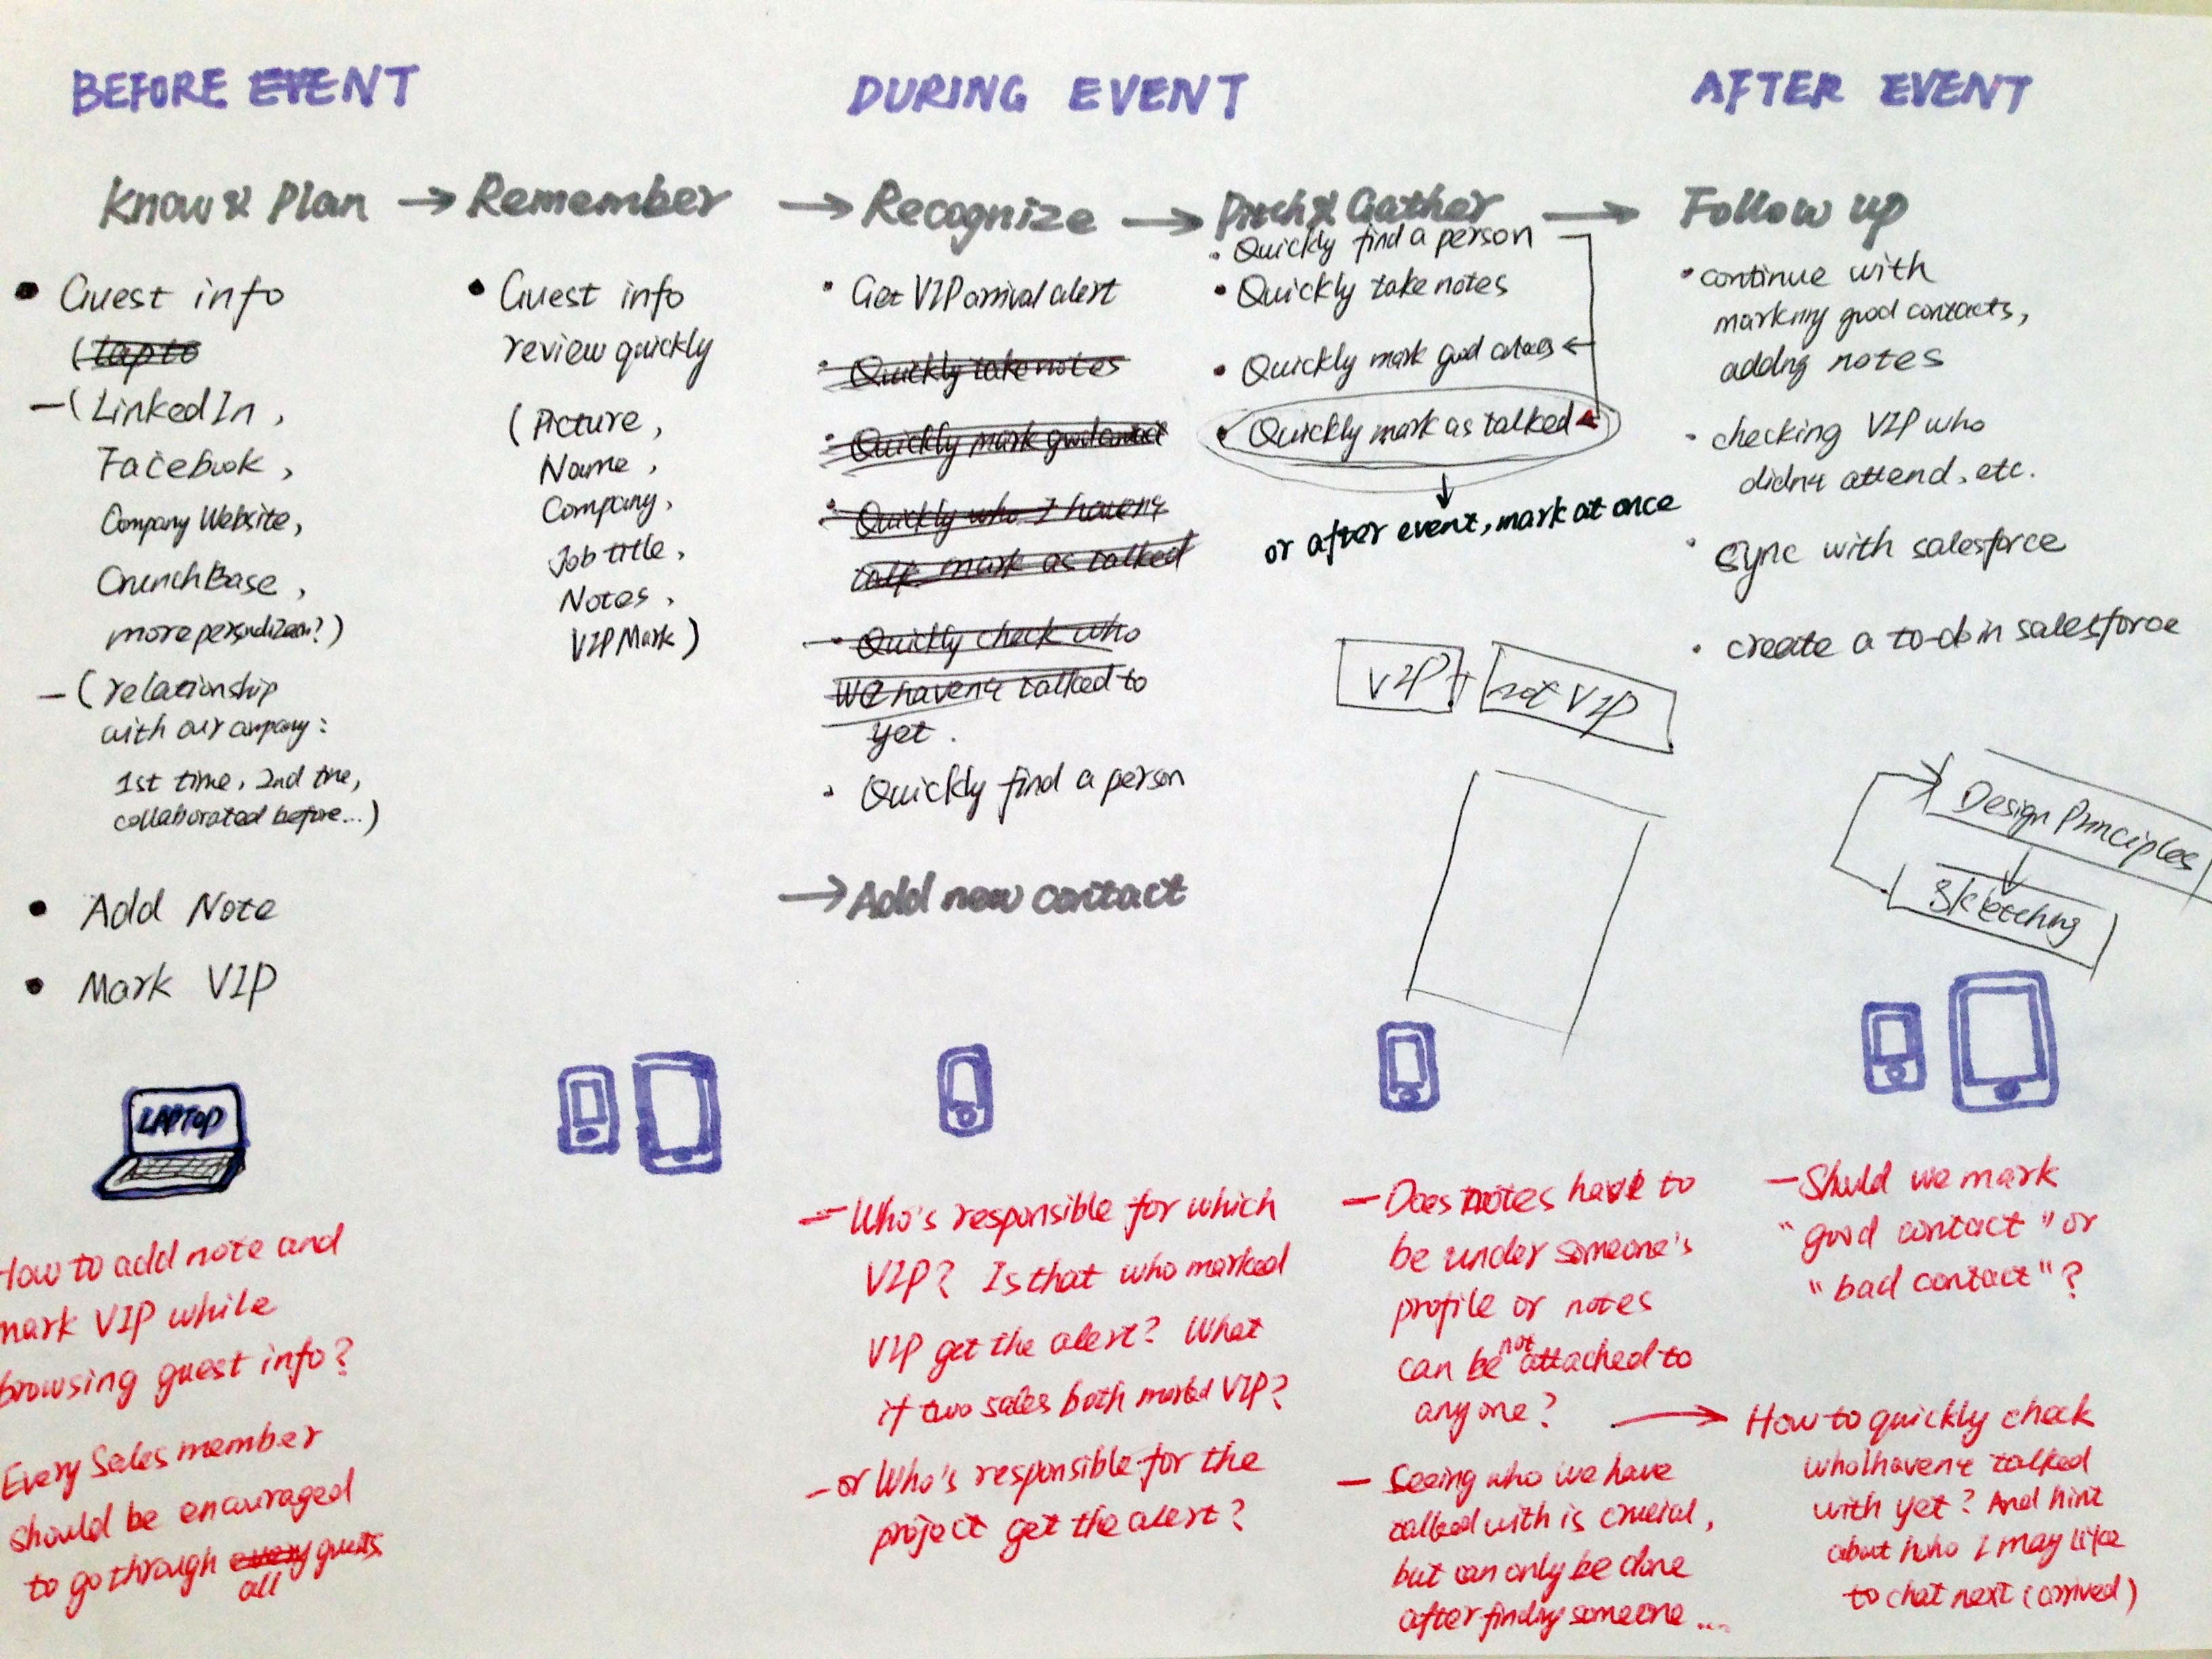 BEFORE EVENT
DURING EVENT
AFTER EVENT
Know & Plan → Remember → Recognize → Pitch & Gather → Follow up
• Guest info
(lap to
– (LinkedIn,
Facebook,
Company Website,
CrunchBase,
more persudizean?)
– (relationship
with our company:
1st time, 2nd tme,
collaborated before...)
• Add Note
• Mark VIP
LAPTOP
How to add note and
mark VIP while
browsing guest info?
Every Sales member
should be encouraged
to go through every guests
all
• Guest info
review quickly
(Picture,
Name,
Company,
Job title,
Notes,
VIP Mark)
• Get VIP arrival alert
• Quickly take notes
• Quickly mark good contact
• Quickly who I haven't
talk mark as talked
• Quickly check who
we haven't talked to
yet.
• Quickly find a person
→ Add new contact
– Who's responsible for which
VIP? Is that who marked
VIP get the alert? What
if two sales both marked VIP?
– or Who's responsible for the
project get the alert?
• Quickly find a person
• Quickly take notes
• Quickly mark good
• Quickly mark as talked
or after event, mark at once
VIP + not VIP
– Does notes have to
be under someone's
profile or notes
can be not attached to
anyone?
– Seeing who we have
talked with is crucial,
but can only be done
after finding someone ...
• continue with
marking good contacts,
adding notes
• checking VIP who
didn't attend, etc.
• sync with salesforce
• create a to-do in salesforce
Design Principles
Sketching
– Should we mark
"good contact" or
"bad contact"?
→ How to quickly check
who I haven't talked
with yet? And hint
about who I may like
to chat next (arrived)